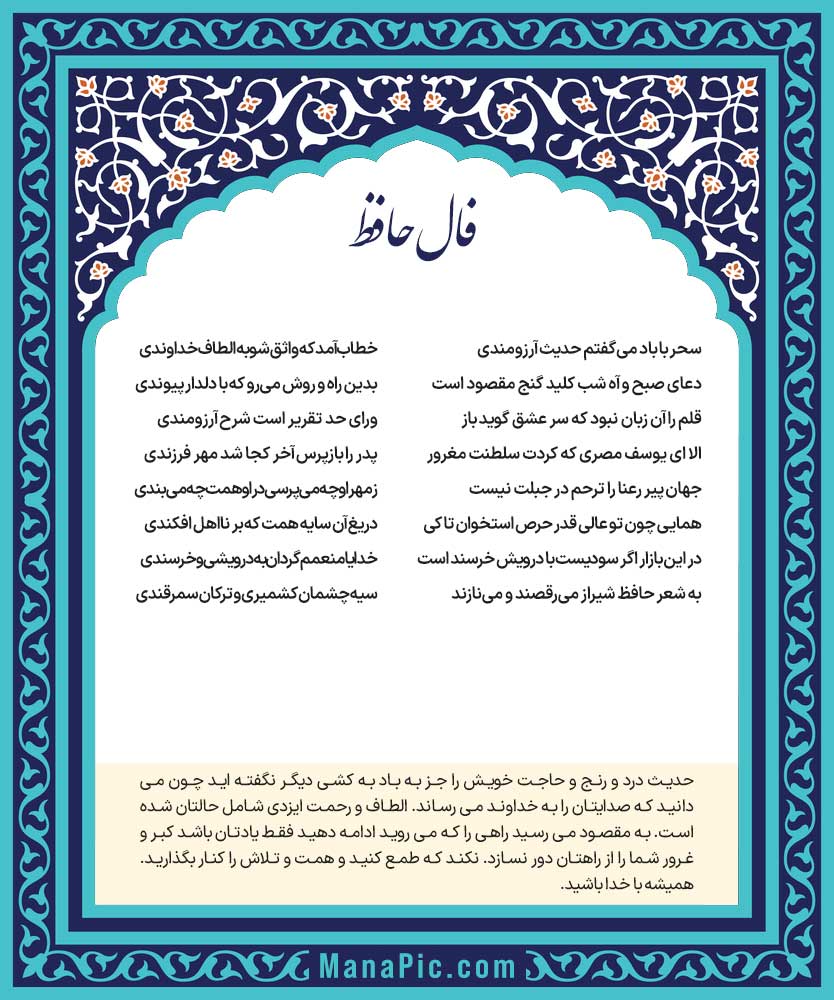 فال حافظ
سحر با باد می‌گفتم حدیث آرزومندی خطاب آمد که واثق شو به الطاف خداوندی
دعای صبح و آه شب کلید گنج مقصود است بدین راه و روش می‌رو که با دلدار پیوندی
قلم را آن زبان نبود که سر عشق گوید باز ورای حد تقریر است شرح آرزومندی
الا ای یوسف مصری که کردت سلطنت مغرور پدر را بازپرس آخر کجا شد مهر فرزندی
جهان پیر رعنا را ترحم در جبلت نیست ز مهر او چه می‌پرسی در او همت چه می‌بندی
همایی چون تو عالی قدر حرص استخوان تا کی دریغ آن سایه همت که بر نااهل افکندی
در این بازار اگر سودیست با درویش خرسند است خدایا منعمم گردان به درویشی و خرسندی
به شعر حافظ شیراز می‌رقصند و می‌نازند سیه چشمان کشمیری و ترکان سمرقندی
حدیث درد و رنج و حاجت خویش را جز به باد به کشی دیگر نگفته اید چون می
دانید که صدایتان را به خداوند می رساند. الطاف و رحمت ایزدی شامل حالتان شده
است. به مقصود می رسید راهی را که می روید ادامه دهید فقط یادتان باشد کبر و
غرور شما را از راهتان دور نسازد. نکند که طمع کنید و همت و تلاش را کنار بگذارید.
همیشه با خدا باشید.
ManaPic.com